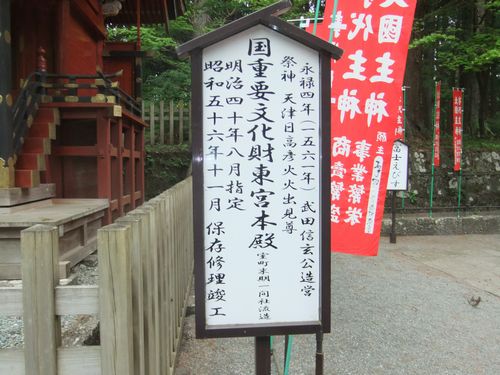 永禄四年(一五六一年)武田信玄公造営
祭神 天津日高彦火火出見尊
国重要文化財東宮本殿
室町末期一間社流造
明治四十年八月指定
昭和五十六年十一月 保存修理竣工
大国主神
事代主神
商売繁盛
事業繁栄
富士えびす